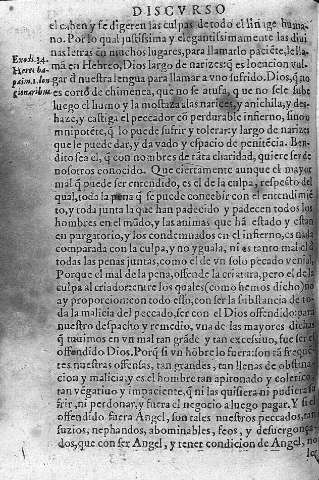 DISCVRSO
el caben y se digeren las culpas de todo el linage huma
no. Por lo qual justissima y elegantissimamente las diui
nas letras en muchos lugares, para llamarlo paciēte, le lla
Exodi. 34.
mā en Hebreo, Dios largo de narizes: q̄ es locucion vul
gar d̄ nuestra lengua para llamar a vno sufrido. Dios, q̄ no
es corto de chimenea, que no se atufa, que no sele sube
luego el humo y la mostaza alas narizes, y anichila, y des-
haze, y castiga el peccador cō perdurable infierno, sino
mnipotēte, q̄ lo puede sufrir y tolerar: largo de narizes
que le puede dar, y da vado, y espacio de penitēcia. Ben-
dito sea el, q̄ con nombres de tāta charidad, quiere ser de
nosotros conocido. Que ciertamente aunque el mayor
mal q̄ puede ser entendido, es el de la culpa, respecto del
qual, toda la pena q̄ se puede concebir con el entendimiē
to, y toda junta la que han padecido y padecen todos los
hombres en el mūdo, y las animas que hā estado y estan
en purgatorio, y los condennados en el infierno, es nada
comparada con la culpa, y no yguala, ni es tanto mal el d̄
todas las penas juntas, como el de vn solo pecado venial.
Porque el mal de la pena, offende la criatura, pero el de la
culpa al criador: entre los quales (como hemos dicho) no
ay proporcion: con todo esso, con ser la substancia de to-
da la malicia del peccado, ser con el Dios offendido: para
nuestro despacho y remedio, vna de las mayores dichas
q̄ tuuimos en vn mal tan grāde y tan excessiuo, fue ser el
offendido Dios. Porq̄ si vn hōbre lo fuera: son tā freque
tes nuestras offensas, tan grandes, tan llenas de obstina
cion y malicia, y es el hombre tan apironado y colerico,
tan vēgatiuo y impaciente, q̄ ni las quisiera ni pudiera su
frir, ni perdonar, y fuera el negocio a luego pagar. Y si el
offendido fuera Angel, son tales nuestros peccados, tan
suzios, nephandos, abominables, feos, y desuergonça
dos, que con ser Angel, y tener condicion de Angel, no